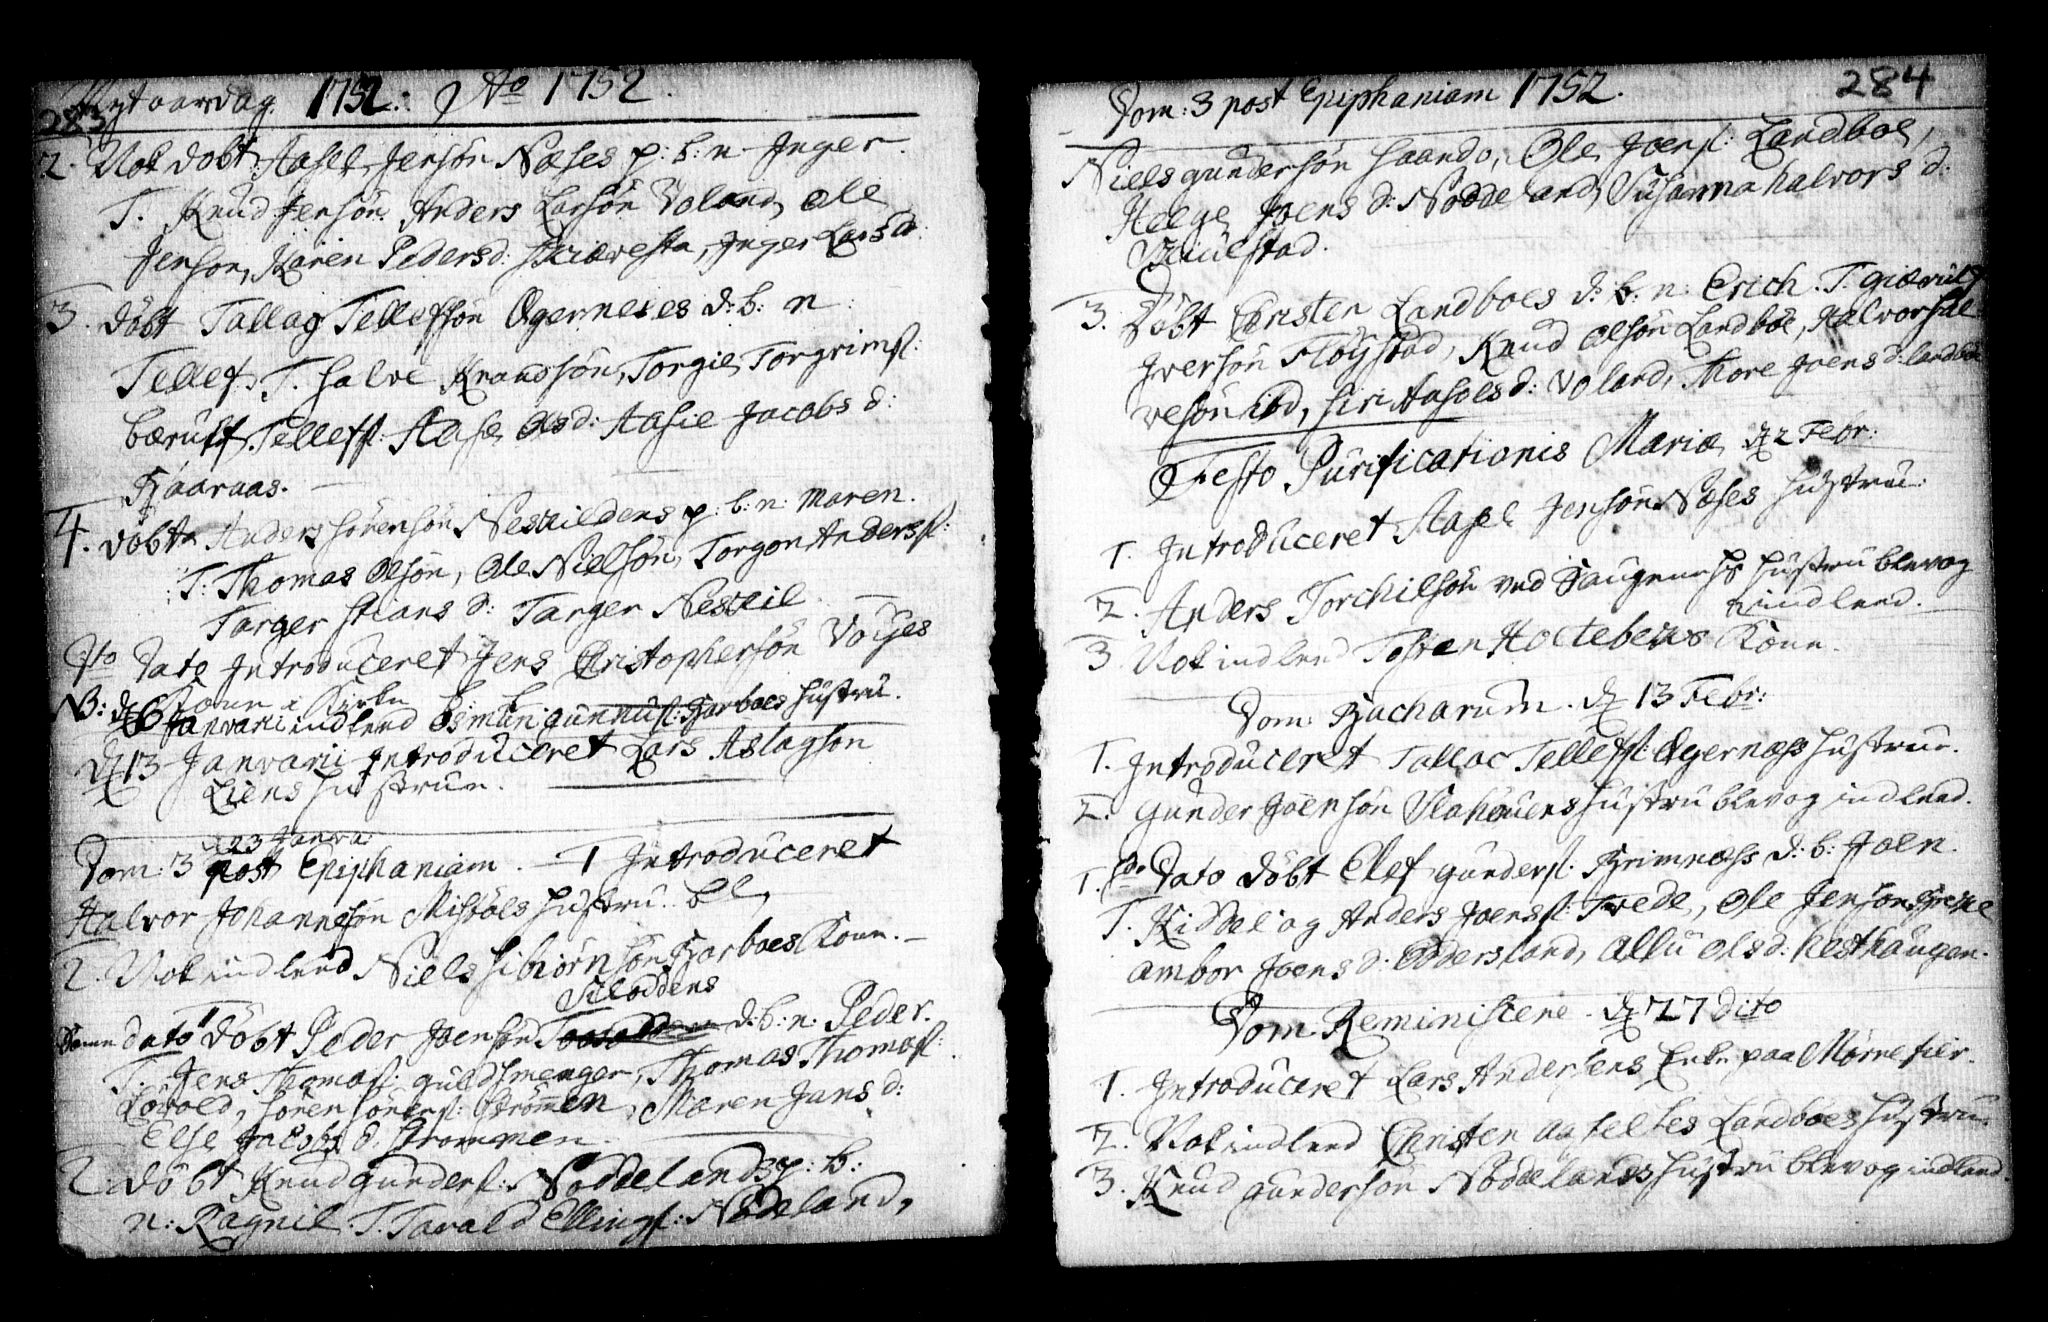 Nyt aarsdag 1752. Ao 1752.
283
2. Nok döbt Aasel Jensön Næses p: b: n. Inger.
T. Knud Jensön, Anders Larsön Voland, Ole
Jensön, Karen Peders d: Skiæresta, Inger Lars d:
3. döbt Tallag Tellefsön Ogernes es d: b: n:
Tellef. T. Halve Knudsön, Torgie Torgrims:
Berulf Tellefs: Aase Ols d: Aasie Jacobs d:
Kaaraas.
4. döbt Anders Sörensön Neskildens p: b: n: Maren.
T: Thomas Olsön, Ole Nielsön, Torgon Anders:
Targer Stians d: Targer Neskil.
Do Dato Introduceret Jens Christophersön Voyes
Kone i Kirken
NB: d 6 Januarii indleed Osmun Gunnus: Garboes Hustru.
d 13 Januarii Introduceret Lars Aslagsön
Liens Hustrue.
d 23 Janua:
Dom: 3 post Epiphaniam. 1 Introduceret
Halvor Johannesön Misböls Hustru bl.
2. Nok indleed Niels Sibiörnsön Garboes Kone.
Kiloddens
Samme dato 1 Döbt Peder Joensön d: b: n: Peder.
T. Jens Thomas: Guldsmenger, Thomas Thomas:
Lövold, Sören Sörens: Strömmen, Maren Jans d:
Else Jacobs d. Strømmen.
2. döbt Knud Gunders: Noddelands p: b:
n: Ragnil. T. Tarald Ellings: Nodeland,
Dom: 3 post Epiphaniam 1752.
284
Niels Gundersön Haando, Ole Joens: Landboe,
Helge Joens d: Noddeland, Susanna Halvors d:
Vriulstad.
3. Döbt Christen Landboes d: b: n: Erich. T. Giærulf
Iversön Flöystad, Knud Olsön Landböe, Halvor Hal
vesön ibd, Siri Aasols d: Voland, Thore Joens d: Landboe
Festo Purificationis Mariæ d 2 Febr:
1. Introduceret Aasel Jensön Næses Hustrue.
2. Anders Torchilsön ved Haugenes Hustru blev og
indleed.
3. Nok indleed Tosten Holtebergs Kone.
Dom: Esto d 13 Febr:
1. Introduceret Tallac Tellefs: Ogernæss Hustrue.
2. Gunder Joensön Vlahöuens Hustru blev og indleed.
1. Do Dato döbt Elef Gunders: Grimnæss d: b: Joen.
T. Kiddel og Anders Joens: Tvede, Ole Jensön
Ambor Joens d: Eddersland, Allu Ols d: Hesthaugen.
Dom Reminiscere. d 27 Dito
1. Introduceret Lars Andersens Enke paa Mörnefier.
2. Nok indleed Christen Landboes Hustrue.
3. Knud Gundersön Noddelands Hustru blev og indleed.